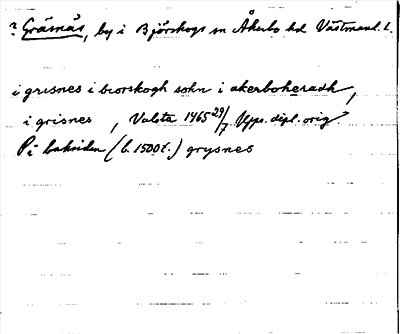 ? Gräsnäs, by i Björskogs sn Åkerbo hd Västmanl. l.
i grisnes i biorskogh sokn i akerboheradh,
i grisnes, Valsta 1465 29/7 Upps. dipl. orig.
På baksidan (b. 1500t.) grysnes